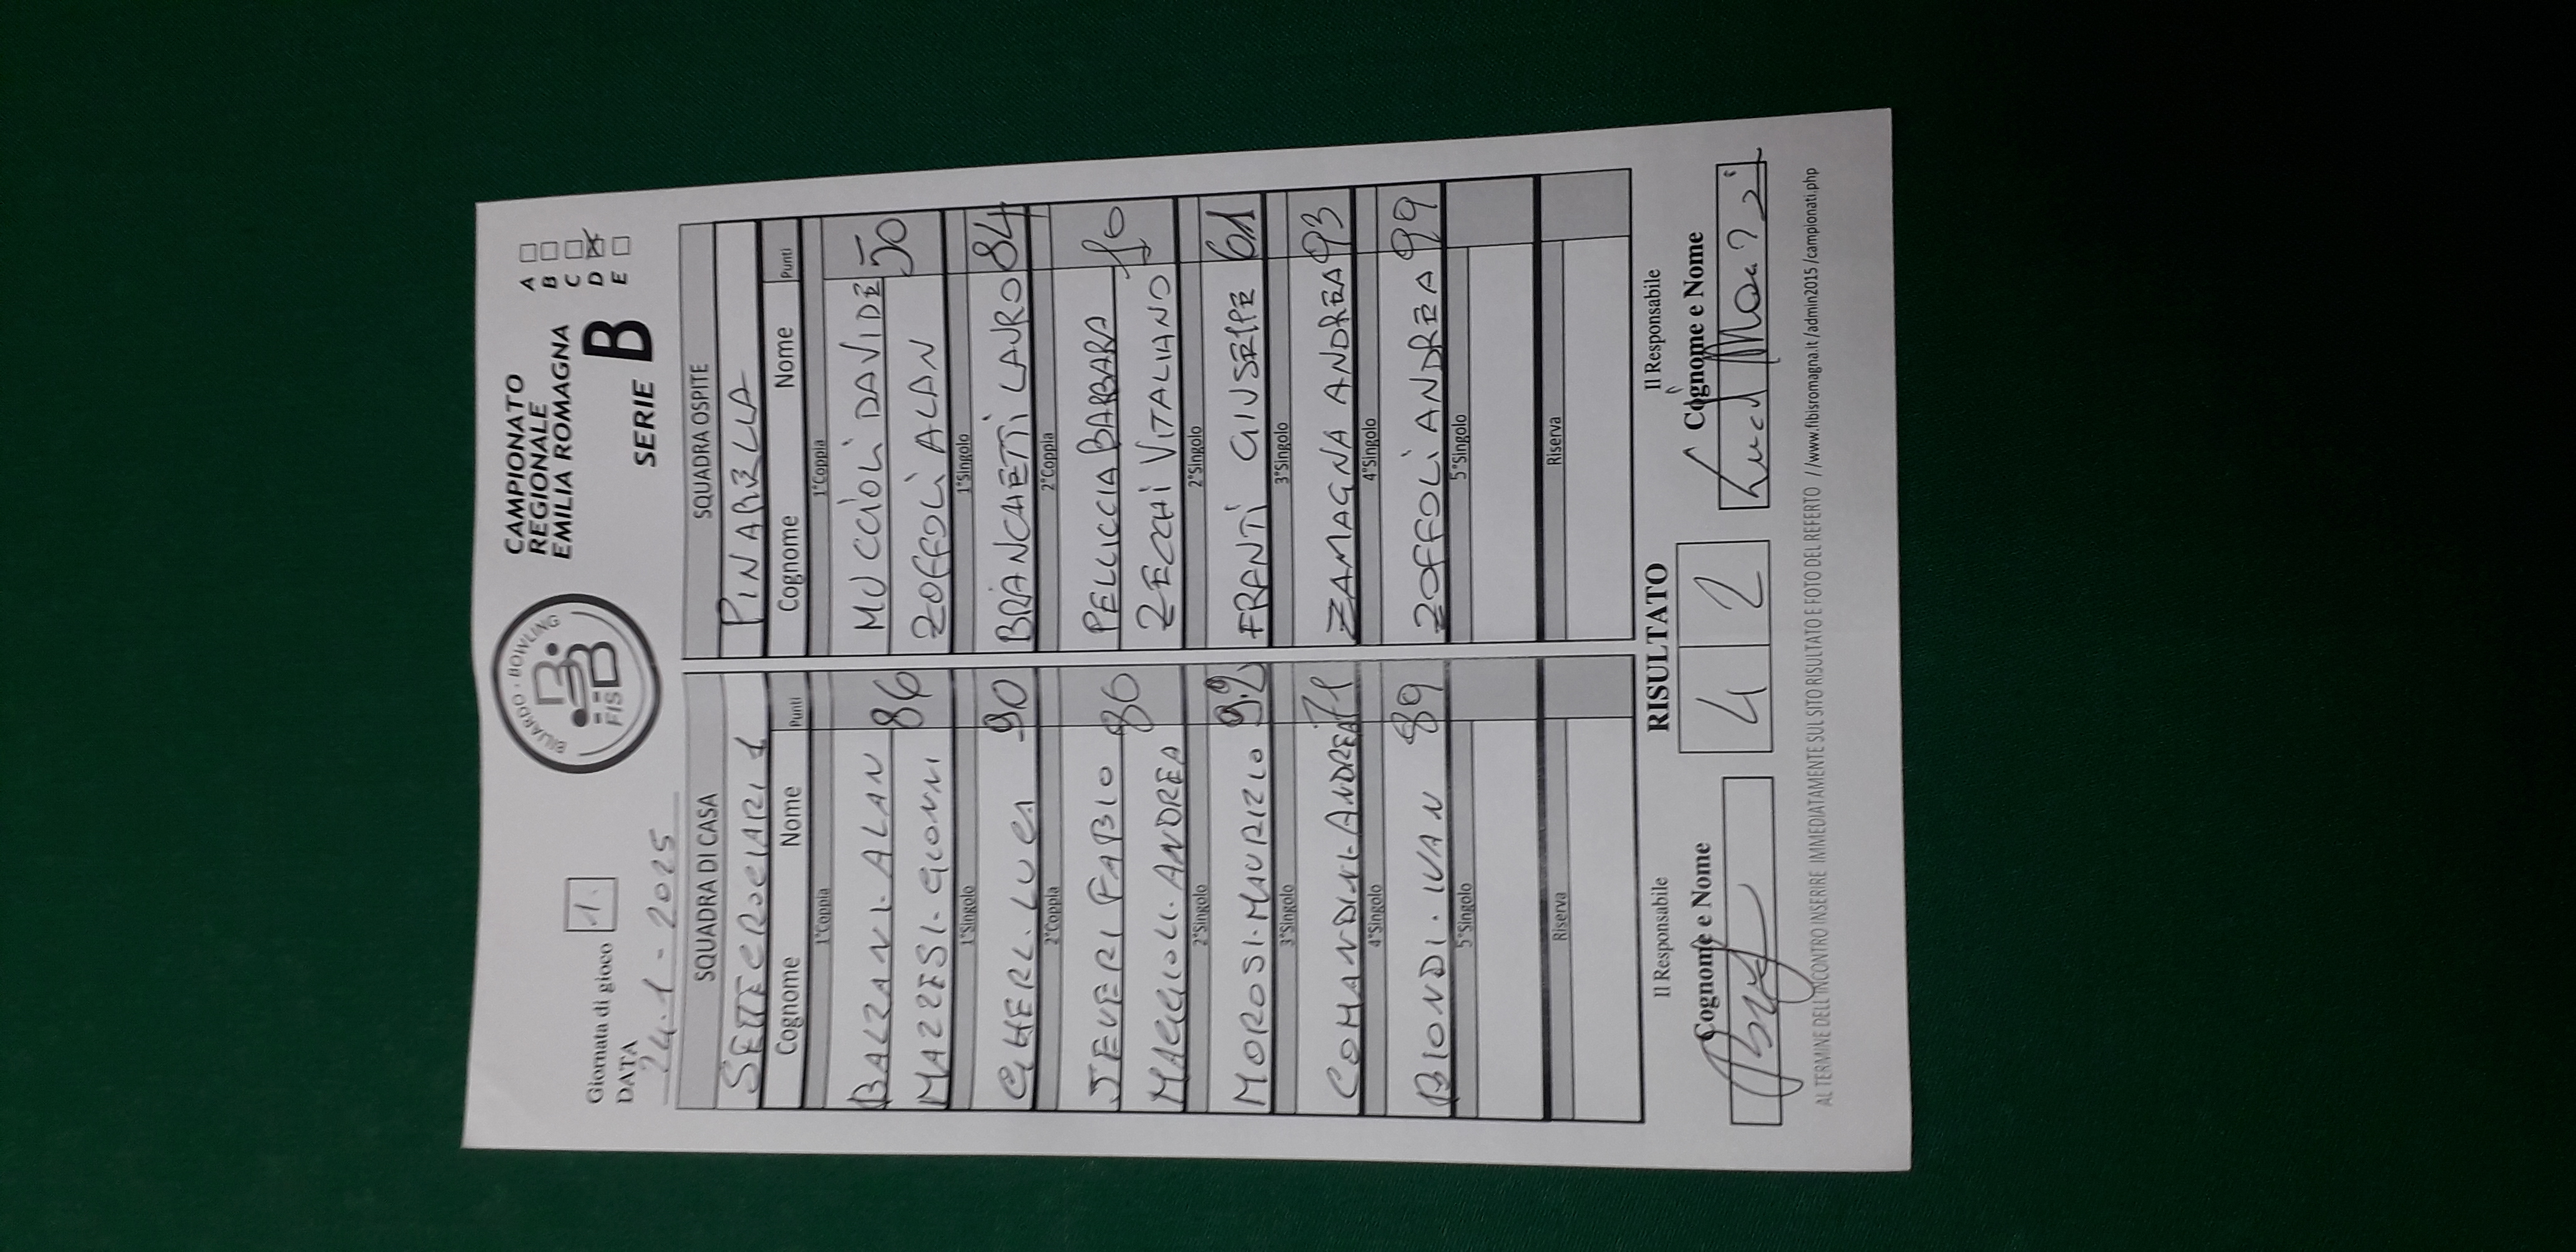 BILIARDO - BOWLING
FISBB
CAMPIONATO
REGIONALE
EMILIA ROMAGNA
SERIE B
A
B
C
D
E
Giornata di gioco 1.
DATA
24.1-2025
SQUADRA DI CASA
SETTECROCIARI 1
Cognome Nome Punti
1°Coppia
BALZANI. ALAN
MAZZESI. GIONNI 86
1°Singolo
GHERI. LUCA 90
2°Coppia
SEVERI. FABIO
MAGGIOLI. ANDREA 80
2°Singolo
MOROSI. MAURIZIO 92
3°Singolo
COMANDINI. ANDREA 71
4°Singolo
BIONDI. IVAN 89
5°Singolo
Riserva
SQUADRA OSPITE
PINARELLA
Cognome Nome Punti
1°Coppia
MUCCIOLI DAVIDE
ZOFFOLI ALAN 50
1°Singolo
BRANCHETTI LAURO 84
2°Coppia
PELLICCIA BARBARA
ZECCHI VITALIANO
2°Singolo
FRANTI GIUSEPPE 61
3°Singolo
ZAMAGNA ANDREA 93
4°Singolo
ZOFFOLI ANDREA 99
5°Singolo
Riserva
Il Responsabile
Cognome e Nome
RISULTATO
4 2
Il Responsabile
Cognome e Nome
AL TERMINE DELL'INCONTRO INSERIRE IMMEDIATAMENTE SUL SITO RISULTATO E FOTO DEL REFERTO //www.fibisromagna.it/admin2015/campionati.php